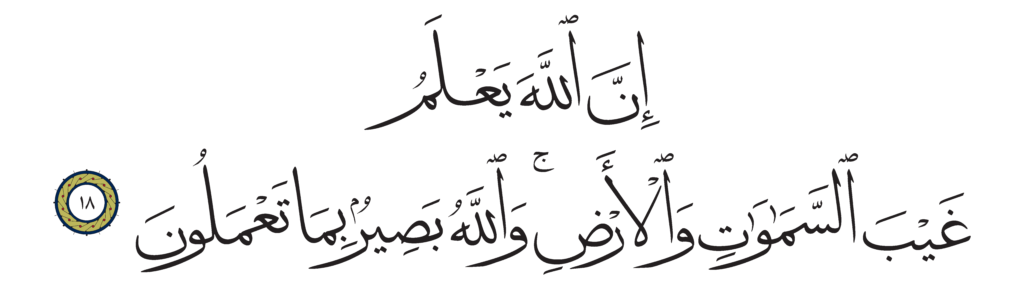 إِنَّ ٱللَّهَ يَعْلَمُ
غَيْبَ ٱلسَّمَٰوَٰتِ وَٱلْأَرْضِ ۚ وَٱللَّهُ بَصِيرٌۢ بِمَا تَعْمَلُونَ ١٨